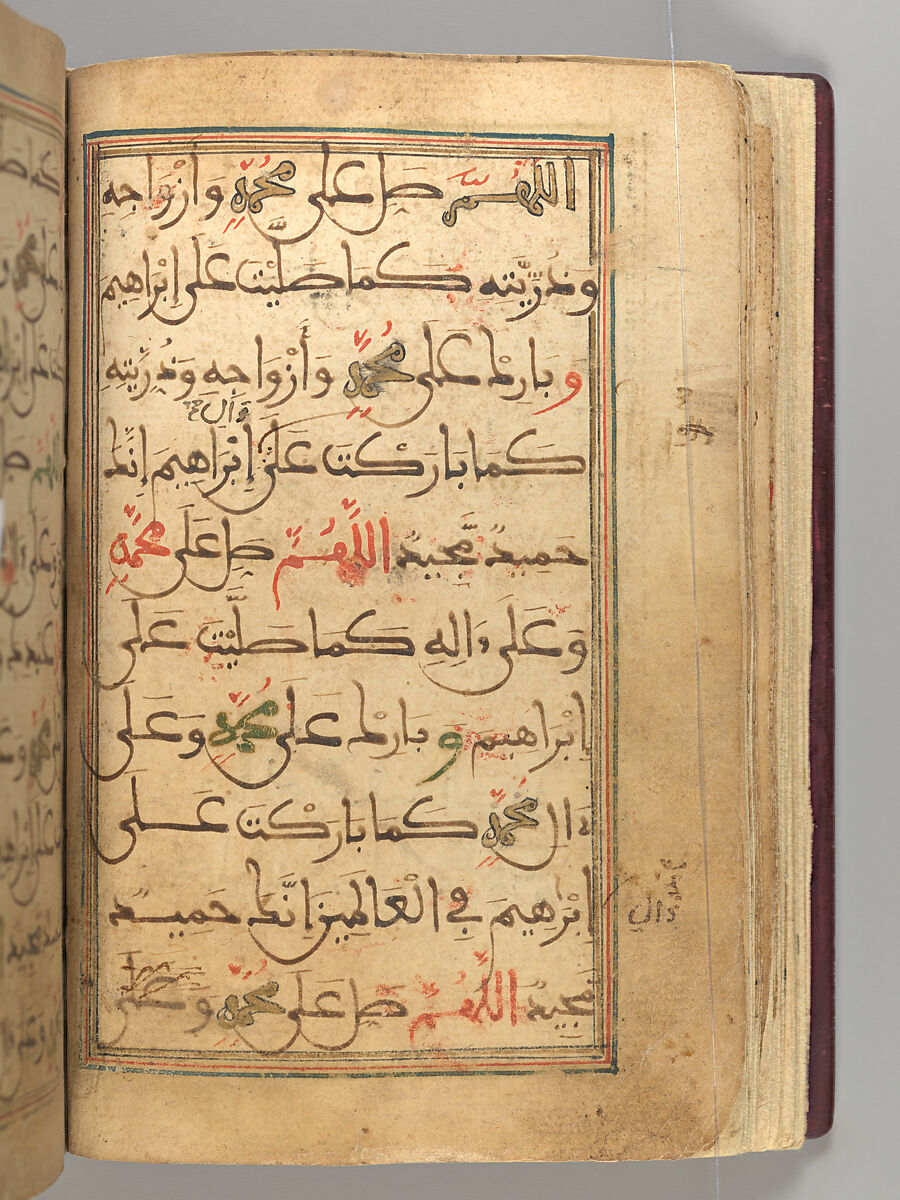 اللهم صل على محمد وأزواجه
وذريته كما صليت على إبراهيم
وبارك على محمد وأزواجه وذريته
وال
كما باركت على إبراهيم إنك
حميد مجيد اللهم صل على محمد
وعلى ءاله كما صليت على
إبراهيم وبارك على محمد وعلى
ءال محمد كما باركت على
إبرهيم في العالمين إنك حميد
ال
مجيد اللهم صل على محمد وعلى